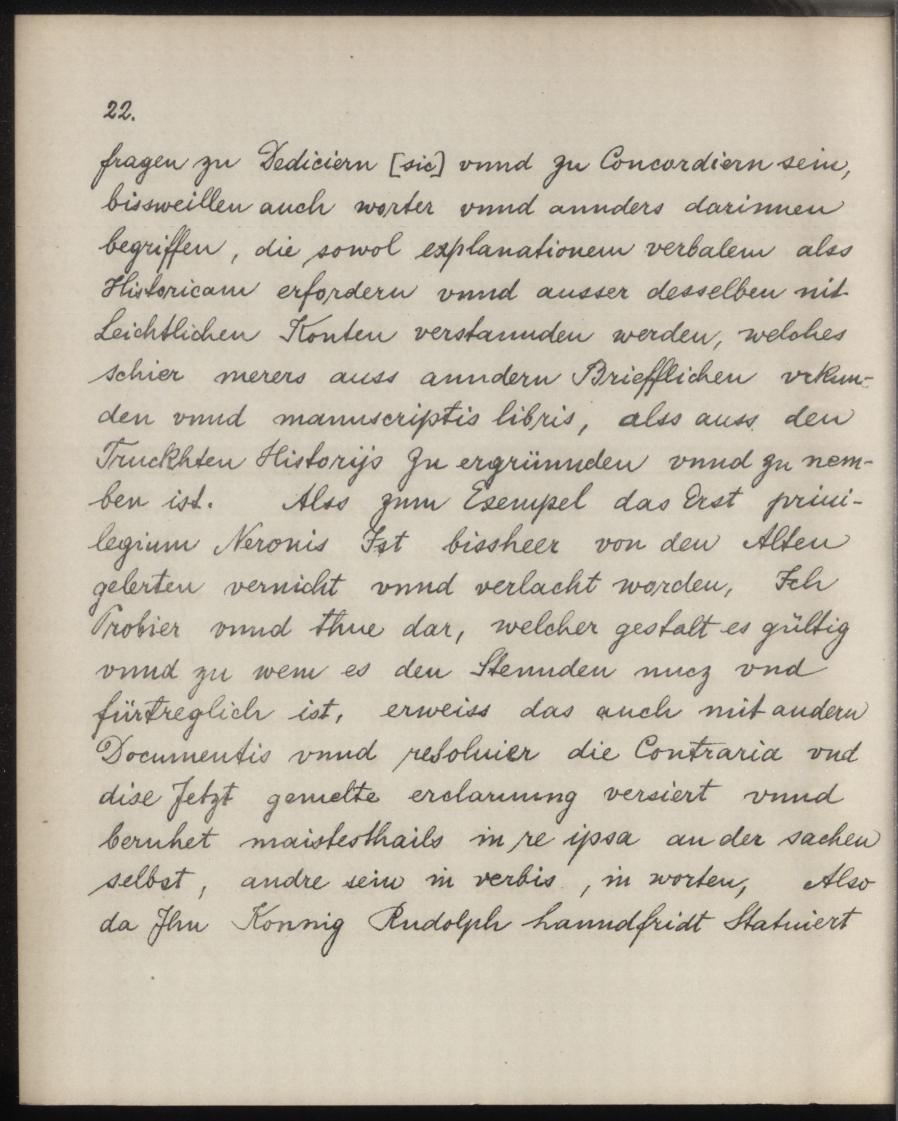 22.
fragen zu Dediciern [sic] vnnd zu Concordiern sein,
bissweillen auch worter vnnd annders darinnen
begriffen, die sowol explanationem verbalem alss
Historicam erfordern vnnd ausser desselben nit
Leichtlichen Konten verstannden werden, welches
schier merers auss anndern Briefflichen vrkun-
den vnnd manuscriptis libris, alss auss den
Truckhten Historijs Zu ergrünnden vnnd zu nem-
ben ist. Alss zum Exempel das Erst priui-
legium Neronis Ist bissheer von den Alten
gelerten vernicht vnnd verlacht worden, Ich
Probier vnnd thue dar, welcher gestalt es gültig
vnnd zu wem es den Stennden nucz vnd
fürtreglich ist, erweiss das auch mit andern
Documentis vnnd resoluier die Contraria vnd
dise Jetzt gemelte erclarnung versiert vnnd
beruhet maistesthails in re ipsa an der sachen
selbst, andre sein in verbis, in worten, Also
da Jhn Konnig Rudolph lanndfridt Statuiert